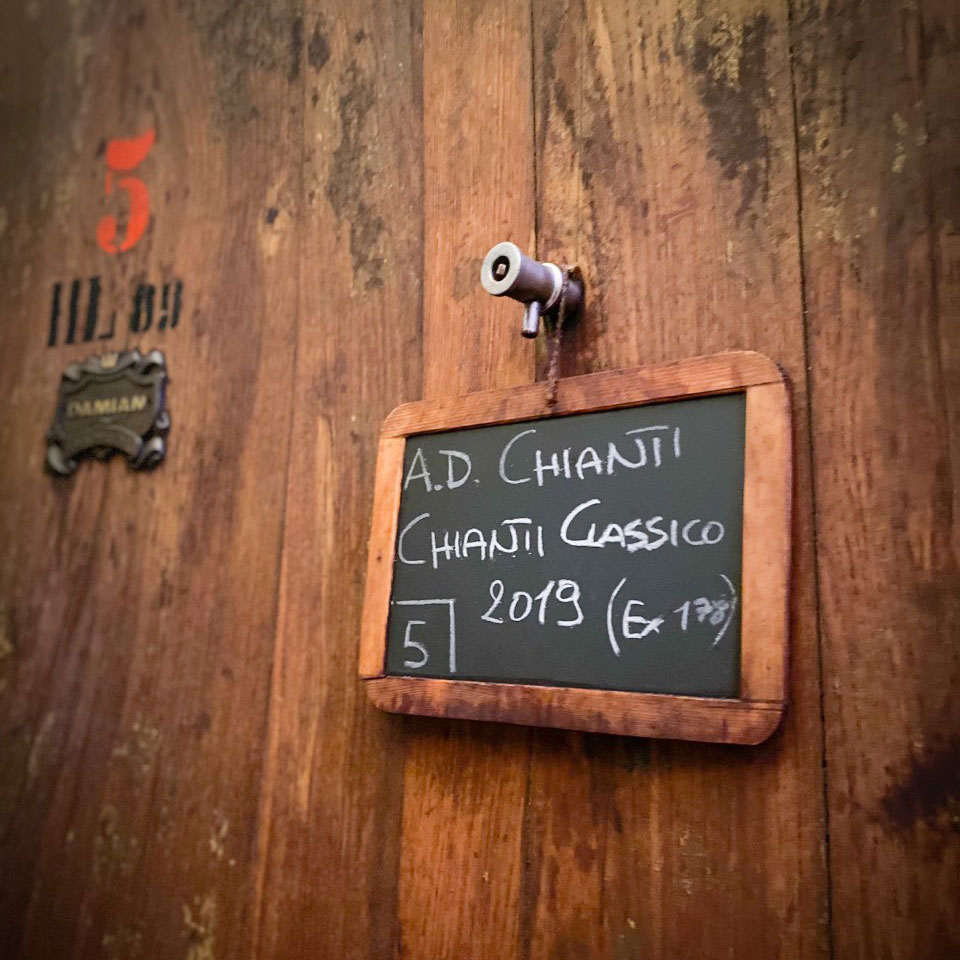 5
HL 89
DAMIAN
A.D. CHIANTI
CHIANTI CLASSICO
2019 (Ex 178)
5